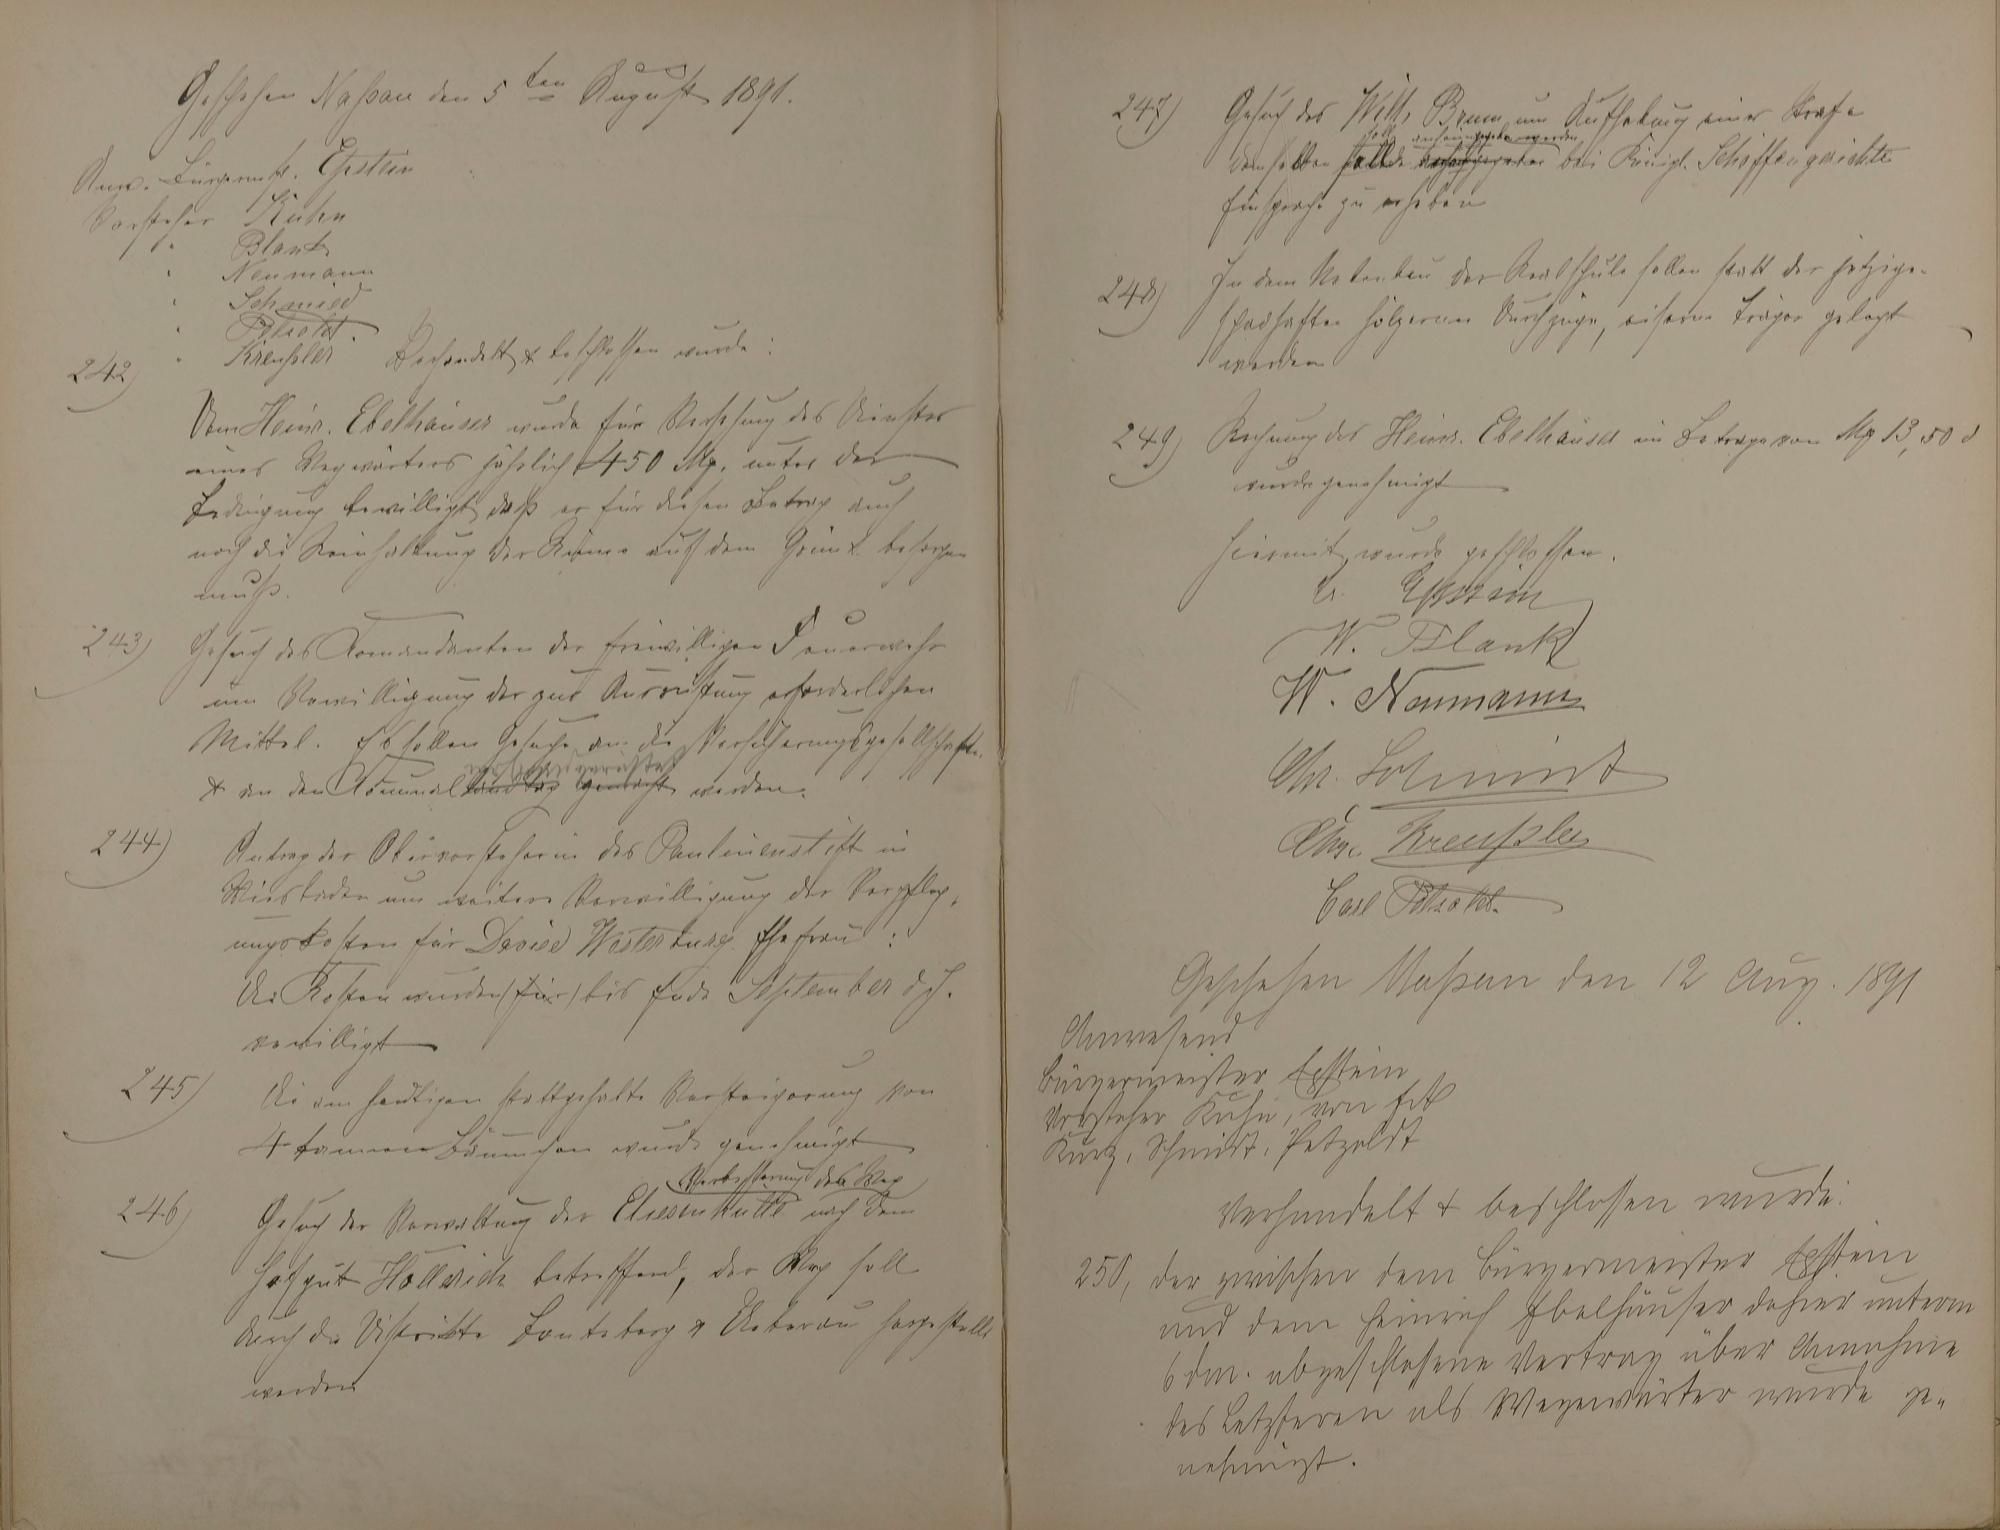 Geschehen Naßau den 5ten August 1891.
Anw. Bürgermst. Epstein
Vorsteher Kuhn
" Blank
" Neumann
" Schmied
" Petzoldt.
" Kreußler Verhandelt & beschloßen wurde:
242) Dem Heinr. Ebelhäuser wurde für Versehung des Dienstes
eines Wegwärters jährlich 450 Mk. unter der
Bedingung bewilligt daß er für diesen Betrag auch
noch die Reinhaltung der Räume auf dem Grünt. besorgen
muß.
243) Gesuch des Komandanten der freiwilligen Feuerwehr
um Verwilligung der zur Ausrüstung erforderlichen
Mittel. Es sollen Gesuche an die Versicherungsgesellschafte.
& an den Komunallandtag gemacht werden.
244) Antrag der Obervorsteherin des Paulinenstift in
Wiesbaden um weitere Verwilligung der Verpfleg,
ungskosten für David Westerburg Ehefrau:
Die Kosten wurden (für) bis Ende September d. J.
verwilligt
245) Die am heutigen stattgehabte Versteigerung von
4 tannen Bäumchen wurde genehmigt
246) Gesuch der Verwaltung der Elisenhütte Verbeßerung des Weg nach dem
Hofgut Hollerich betreffend, der Weg soll
durch die Distrikte & hergestellt
werden
247) Gesuch des Wilh. Brum um Aufhebung einer Strafe
demselben soll anheimgegeben werden bei Königl. Schöffengerichte
Einsprache zu erheben
248) In dem Nebenbau der Realschule sollen statt der jetzige-
schadhaften hölzernen Durchzüge, eiserne Träger gelegt
werden
249) Rechnung des Heinr. Ebelhäuser im Betrage von Mk 13,50 d
wurde genehmigt
Hiermit wurde geschloßen.
Epstein
W. Blank
W. Neumann
Chr. Schmidt
Chr. Kreußler
Carl Petzoldt.
Geschehen Naßau den 12 Aug. 1891
Anwesend
Bürgermeister Epstein
Vorsteher Kuhn, von Eck
Kurz, Schmidt, Petzoldt
Verhandelt & beschlossen wurde:
250, der zwischen dem Bürgermeister Epstein
und dem Heinrich Ebelhäuser dahier unterm
6 dM. abgeschlossene Vertrag über Annahme
des Letzteren als Wegewärter wurde ge„
nehmigt.